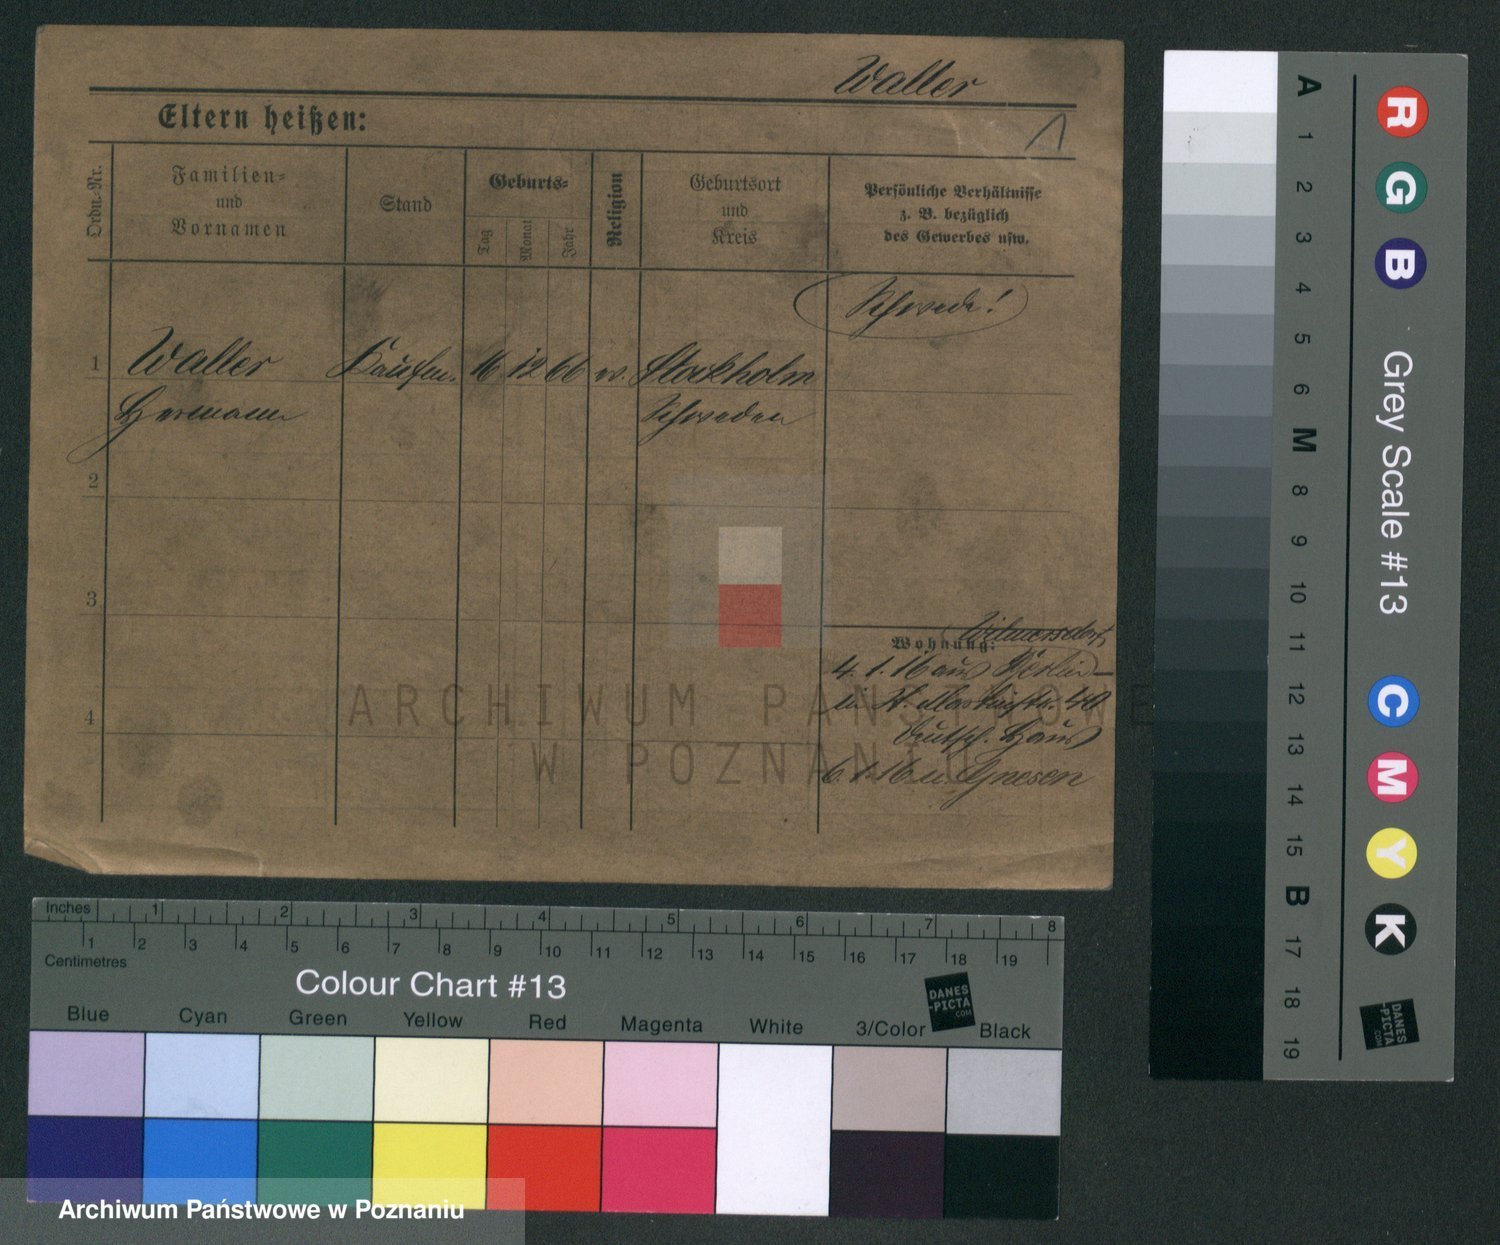 Waller
Eltern heißen:
1
Ordn.-Nr.
Familien-
und
Vornamen
Stand
Geburts-
Tag
Monat
Jahr
Religion
Geburtsort
und
Kreis
Persönliche Verhältnisse
z. B. bezüglich
des Gewerbes usw.
Schwede!
1 Waller Kaufm. 16 12 66 ev. Stockholm
Hermann Schweden
2
3
4
Wilmersdorf
Wohnung:
4. 1. 16 aus Berlin-
n. St. 40
Deutsch. Haus
6. 1. 16 n. Gnesen
ARCHIWUM PAŃSTWOWE
W POZNANIU
Inches 1 2 3 4 5 6 7 8
1 2 3 4 5 6 7 8 9 10 11 12 13 14 15 16 17 18 19
Centimetres
Colour Chart #13
DANES
-PICTA
.COM
Blue Cyan Green Yellow Red Magenta White 3/Color Black
Archiwum Państwowe w Poznaniu
A 1 2 3 4 5 6 M 8 9 10 11 12 13 14 15 B 17 18 19
R G B
Grey Scale #13
C M Y K
DANES
-PICTA
.COM